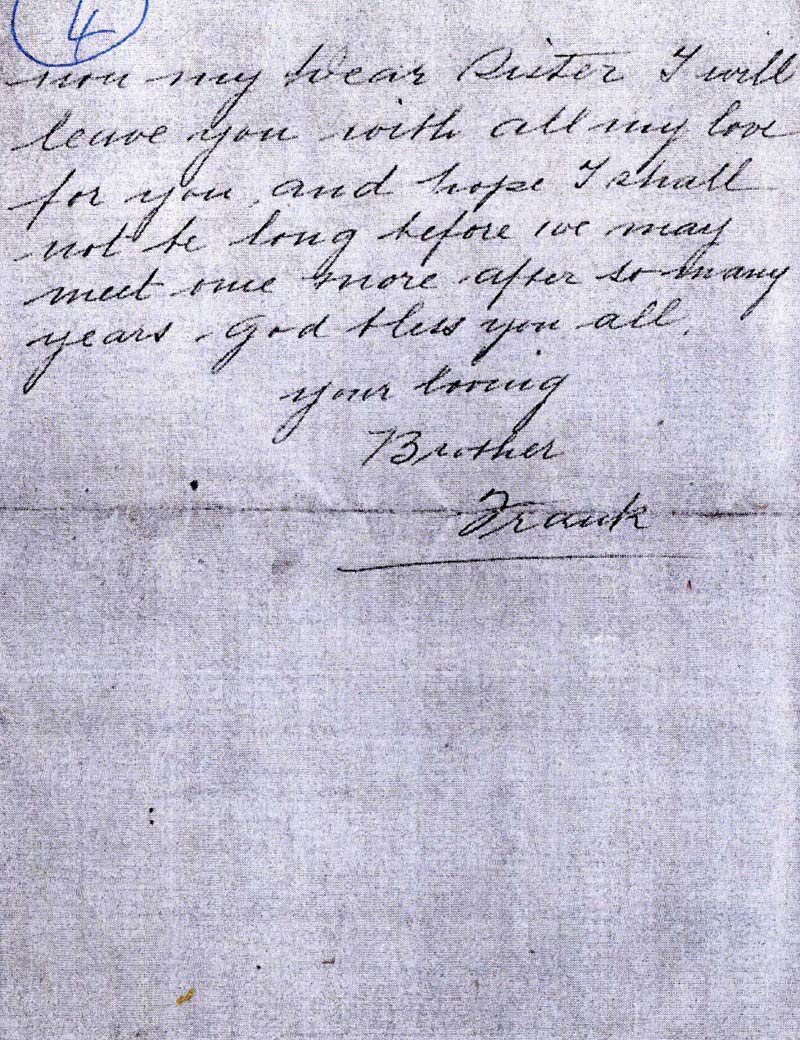 4
now my Dear Sister I will
leave you with all my love
for you, and hope I shall
not be long before we may
meet once more after so many
years. God bless you all.
your loving
Brother
Frank